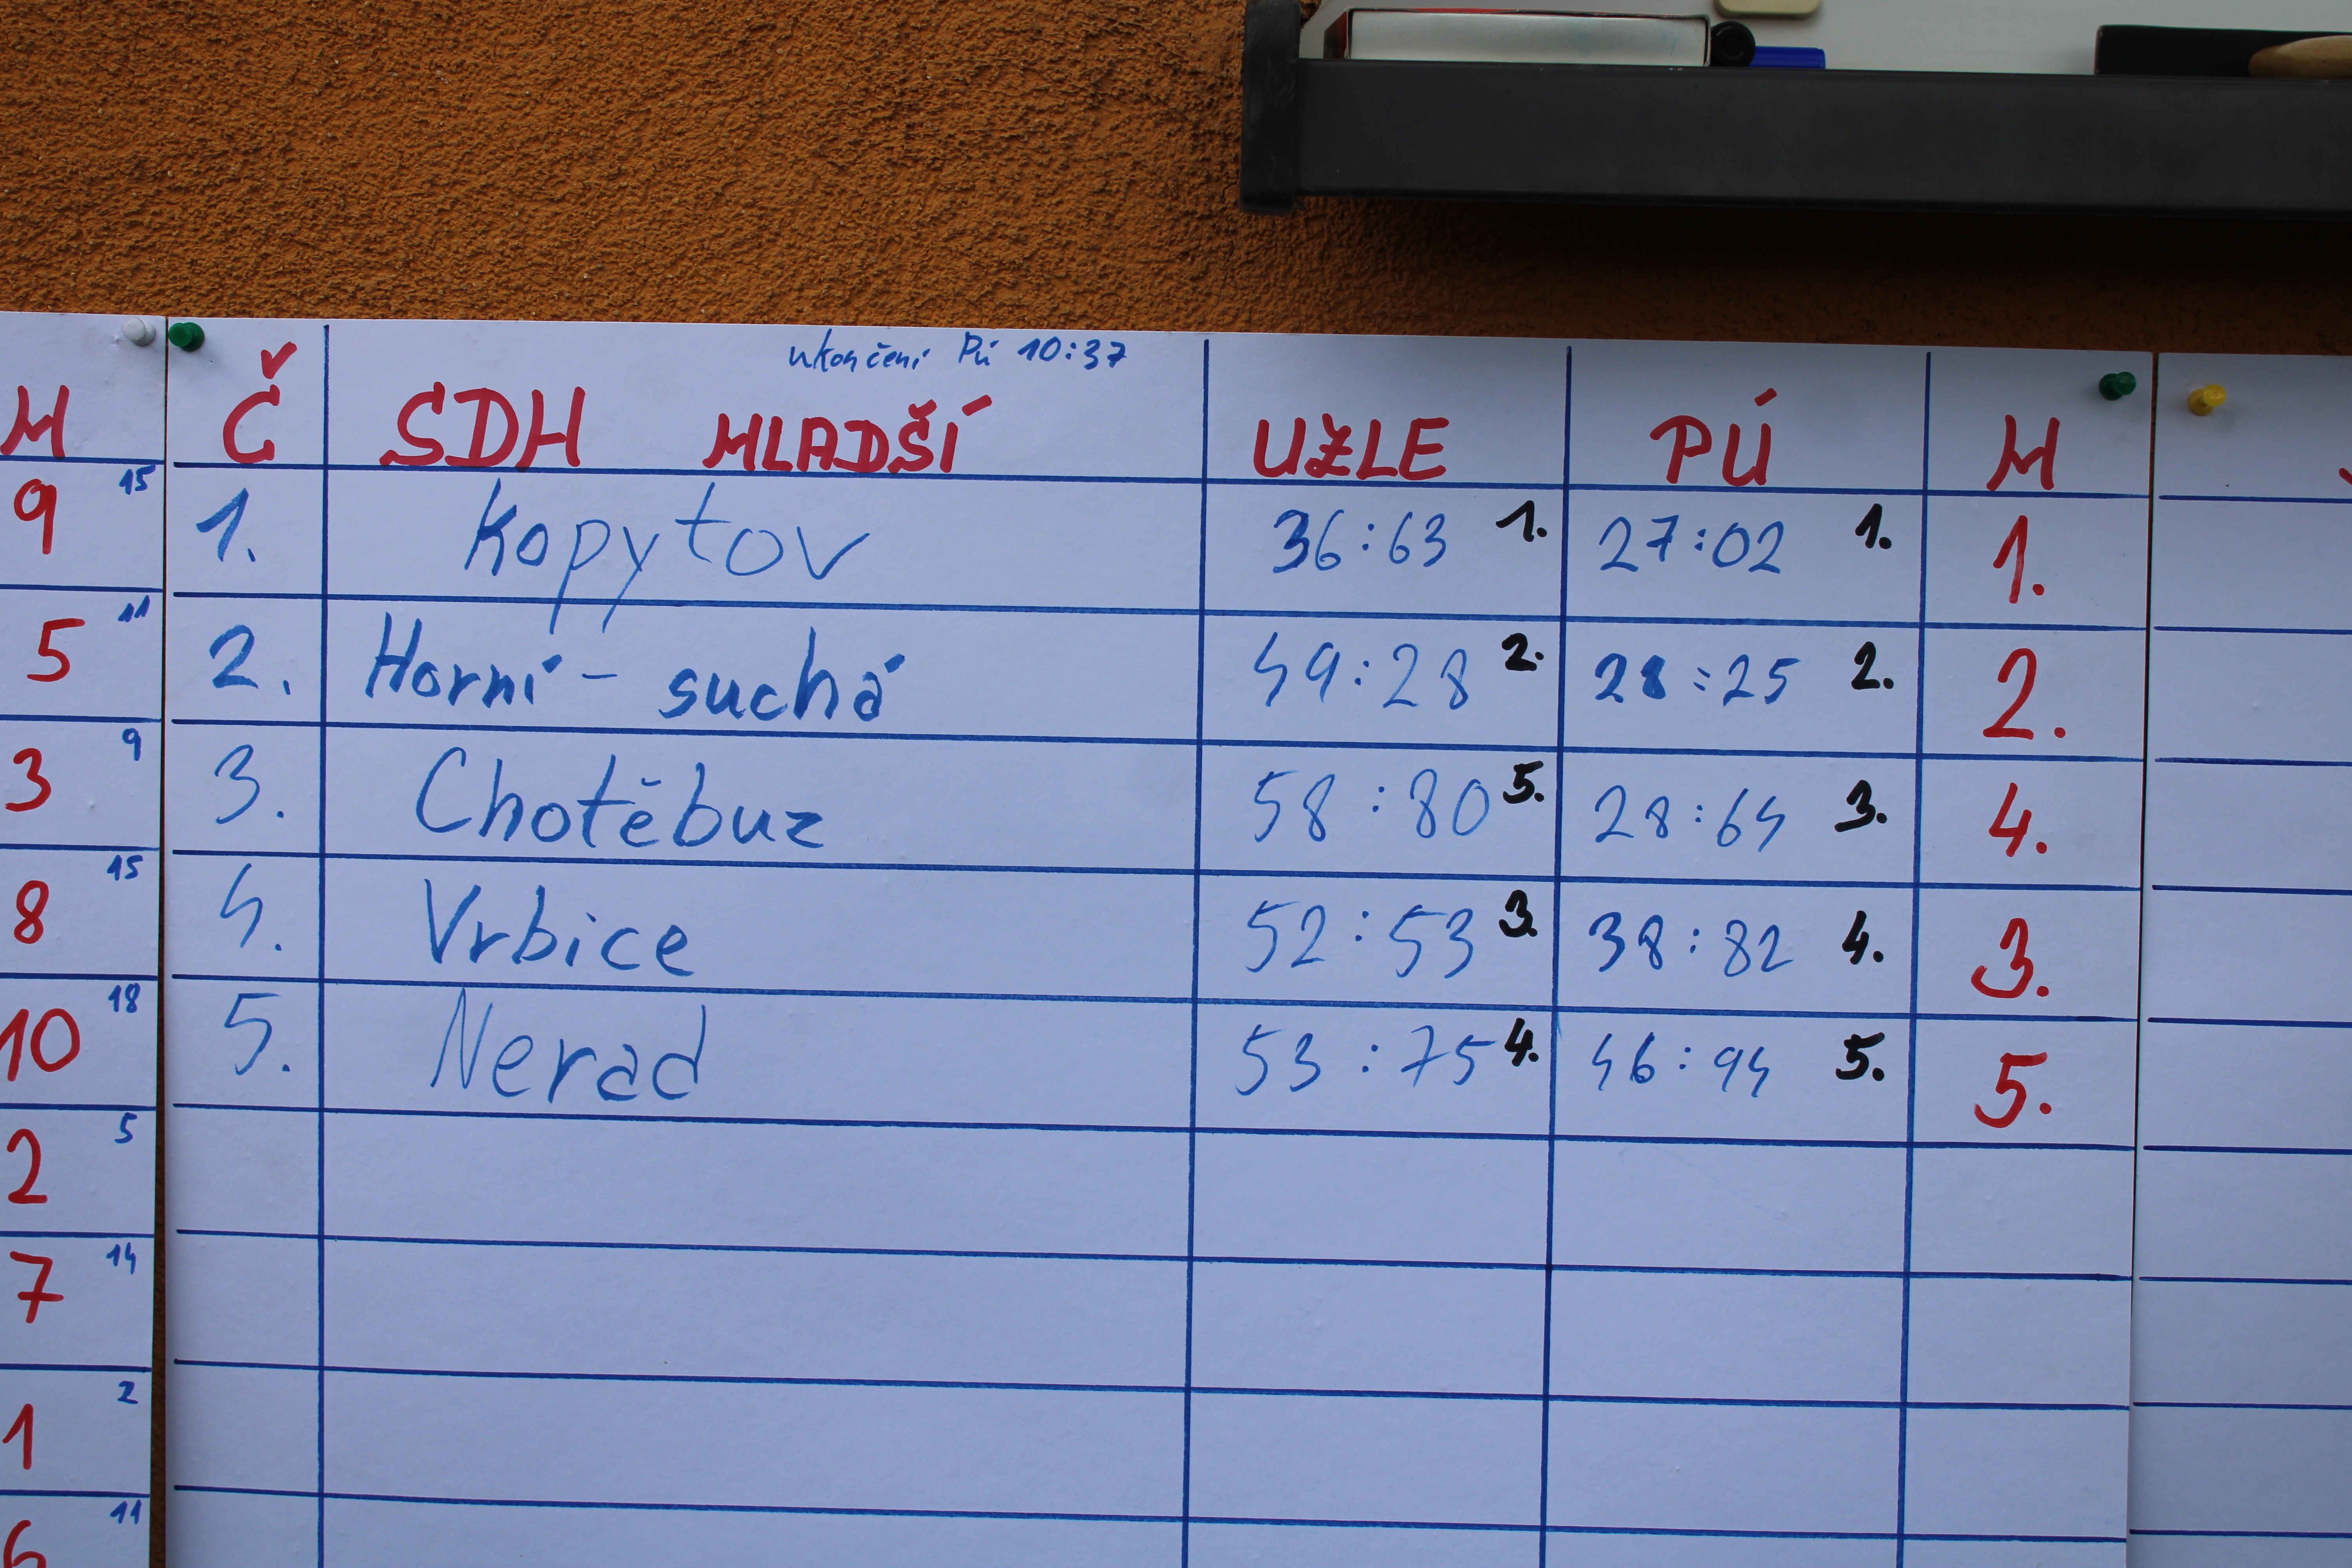 ukončení PÚ 10:37
M
Č SDH MLADŠÍ UZLE PÚ M
9 15
1. Kopytov 36:63 1. 27:02 1. 1.
5 11
2. Horní - suchá 49:28 2. 28:25 2. 2.
3 9
3. Chotěbuz 58:80 5. 28:64 3. 4.
8 15
4. Vrbice 52:53 3. 38:82 4. 3.
10 18
5. Nerad 53:75 4. 46:94 5. 5.
2 5
7 14
1 2
6 11